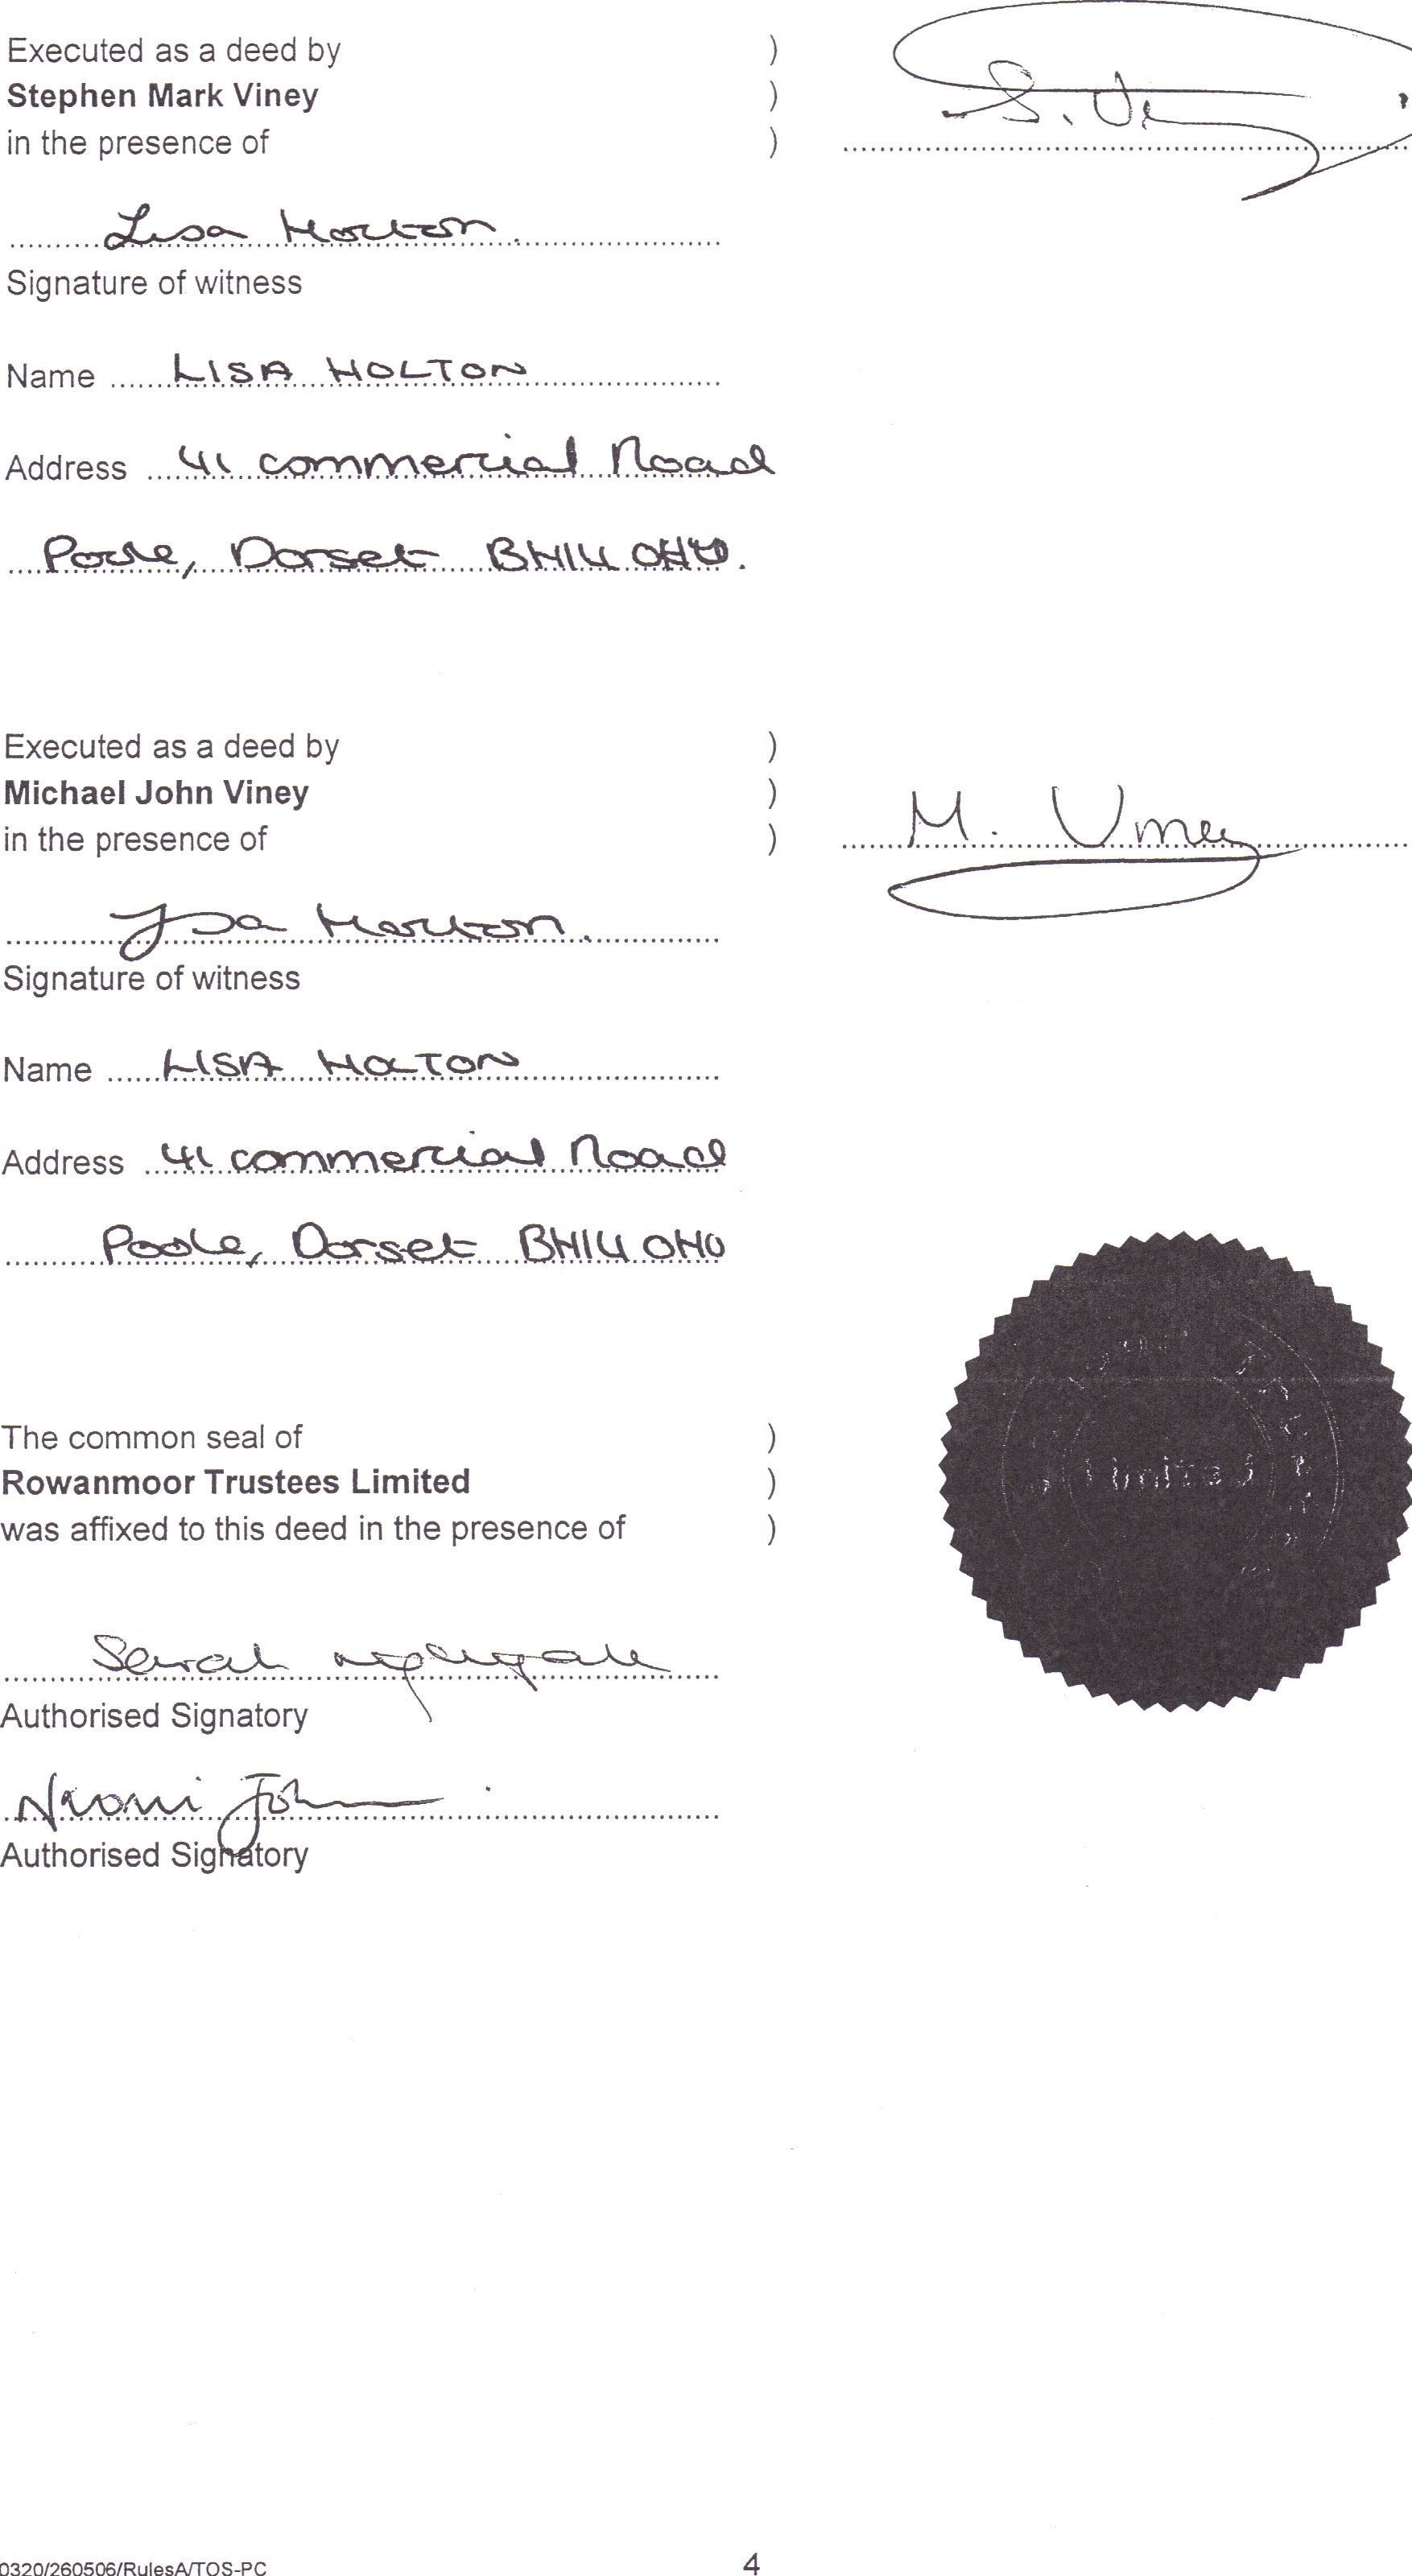 Executed as a deed by )
Stephen Mark Viney )
in the presence of ) S. Viney
Lisa Holton.
Signature of witness
Name LISA HOLTON
Address 41 commercial Road
Poole, Dorset BH14 0HU.
Executed as a deed by )
Michael John Viney )
in the presence of ) M. Viney
Lisa Holton.
Signature of witness
Name LISA HOLTON
Address 41 commercial Road
Poole, Dorset BH14 0HU
The common seal of )
Rowanmoor Trustees Limited ) Limited
was affixed to this deed in the presence of )
Sarah
Authorised Signatory
Naomi John
Authorised Signatory
0320/260506/RulesA/TOS-PC 4